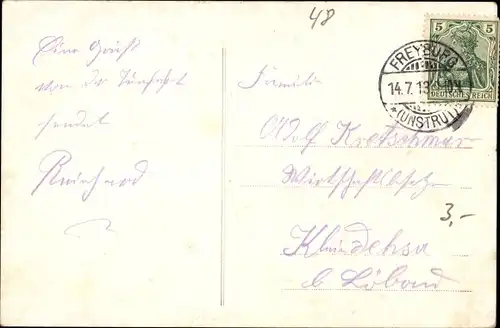 48
5 5
DEUTSCHES REICH
FREYBURG
14.7.13
*(UNSTRUT)
Eine Gruß
von der Turnfahrt
sendet
Reinhard
Familie
Adolf Kretschmar
Wirtschaftsbesitz.
3,-
Kleindehsa
b Löbau